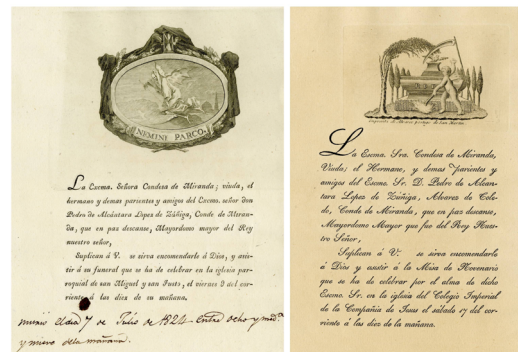 NEMINI PARCO.
La Excma. Señora Condesa de Miranda; viuda, el
hermano y demás parientes y amigos del Excmo. señor don
Pedro de Alcántara Lopez de Zúñiga, Conde de Miran-
da, que en paz descanse, Mayordomo mayor del Rey
nuestro señor,
Suplican á V. se sirva encomendarle á Dios, y asis-
tir á su funeral que se ha de celebrar en la iglesia par-
roquial de san Miguel y san Justo, el viernes 9 del cor-
riente á las diez de su mañana.
murió el dia 7 de Julio de 1824 entre ocho y med.ª
y nueve de la mañana.
La Excma. Sra. Condesa de Miranda,
Viuda; el Hermano, y demas parientes y
amigos del Excmo. Sr. D. Pedro de Alcan-
tara Lopez de Zúñiga, Alvarez de Tole-
do, Conde de Miranda, que en paz descanse,
Mayordomo Mayor que fue del Rey Nues-
tro Señor,
Suplican á V. se sirva encomendarle
á Dios y asistir á la Misa de Novenario
que se ha de celebrar por el alma de dicho
Excmo. Sr. en la iglesia del Colegio Imperial
de la Compañia de Jesus el sábado 17 del cor-
riente á las diez de la mañana.